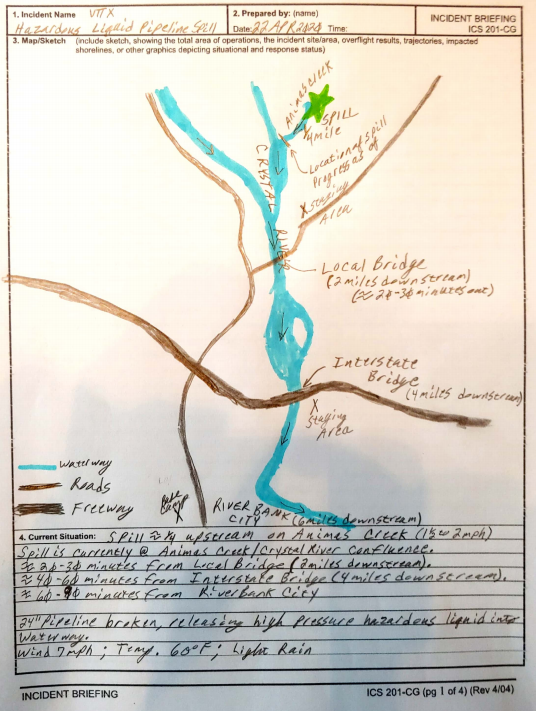 1. Incident Name VTTX
Hazardous Liquid Pipeline Spill
2. Prepared by: (name)
Date: 22 APR 2020 Time:
INCIDENT BRIEFING
ICS 201-CG
3. Map/Sketch (include sketch, showing the total area of operations, the incident site/area, overflight results, trajectories, impacted
shorelines, or other graphics depicting situational and response status)
Animas Creek
SPILL
1/4 mile
Location of spill
Progress as of
X Staging
Area
CRYSTAL RIVER
Local Bridge
(2 miles downstream)
(≈ 20-30 minutes out)
Interstate
Bridge
(4 miles downstream)
X
Staging
Area
Waterway
Roads
Freeway
X
RIVERBANK
CITY (6 miles downstream)
4. Current Situation: SPILL ≈ 1/4 upstream on Animas Creek (1.5 to 2mph)
Spill is currently @ Animas Creek/Crystal River Confluence.
≈ 20-30 minutes from Local Bridge (2 miles downstream).
≈ 40-60 minutes from Interstate Bridge (4 miles downstream).
≈ 60-90 minutes from Riverbank City
24" Pipeline broken, releasing high pressure hazardous liquid into
waterway.
Wind 7mph ; Temp. 60°F ; Light Rain
INCIDENT BRIEFING
ICS 201-CG (pg 1 of 4) (Rev 4/04)